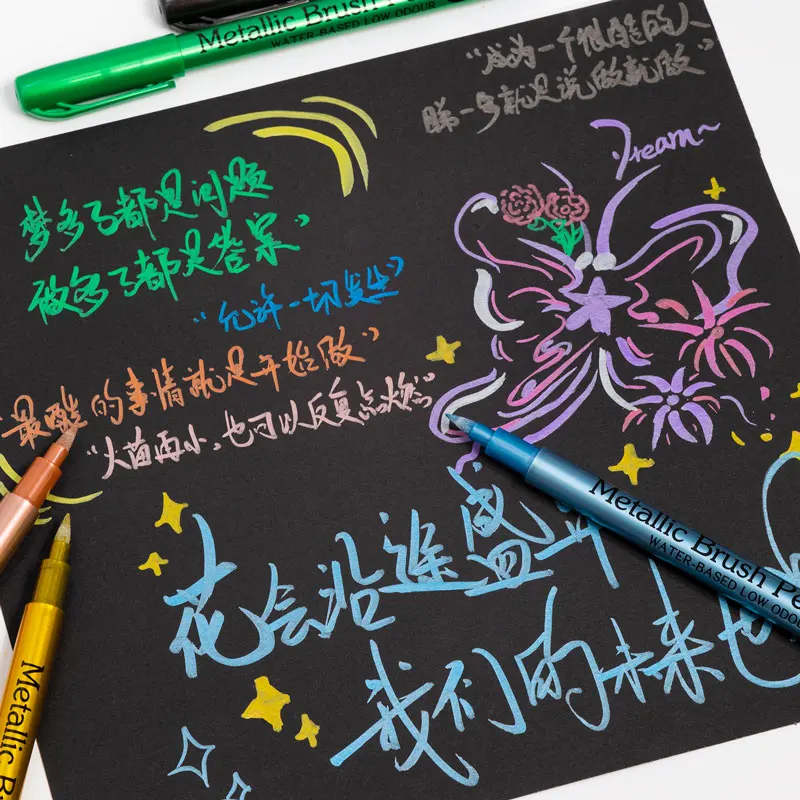 Metallic Brush Pe
WATER-BASED LOW ODOUR
“成为一个很酷的人
睇一乡就是说做就做”
Dream~
梦多了都是问题
做多了都是答案”
“允许一切发生”
“最酷的事情就是开始做”
“火苗再小,也可以反复点燃”
花会沿途盛开
我们的未来也
Metallic Brush Pe
WATER-BASED LOW ODOUR
Metallic B